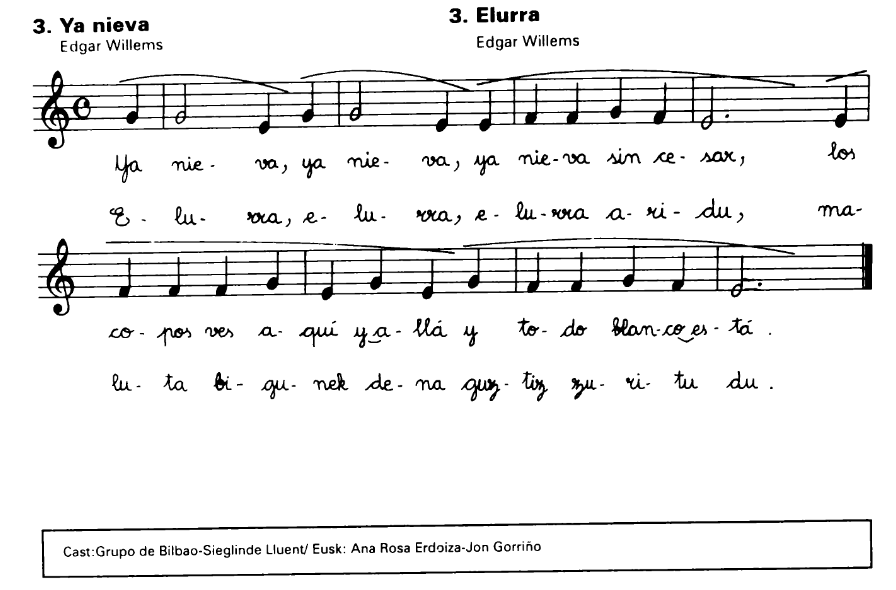 3. Ya nieva
Edgar Willems
3. Elurra
Edgar Willems
Ya nie- va, ya nie- va, ya nie-va sin ce- sar, los
E- lu- rra, e- lu- rra, e- lu-rra a- ri- du, ma-
co- pos ves a- quí y a- llá y to- do blan-co es- tá.
lu- ta bi- gu- nek de- na guz- tiz zu- ri- tu du.
Cast:Grupo de Bilbao-Sieglinde Lluent/ Eusk: Ana Rosa Erdoiza-Jon Gorriño